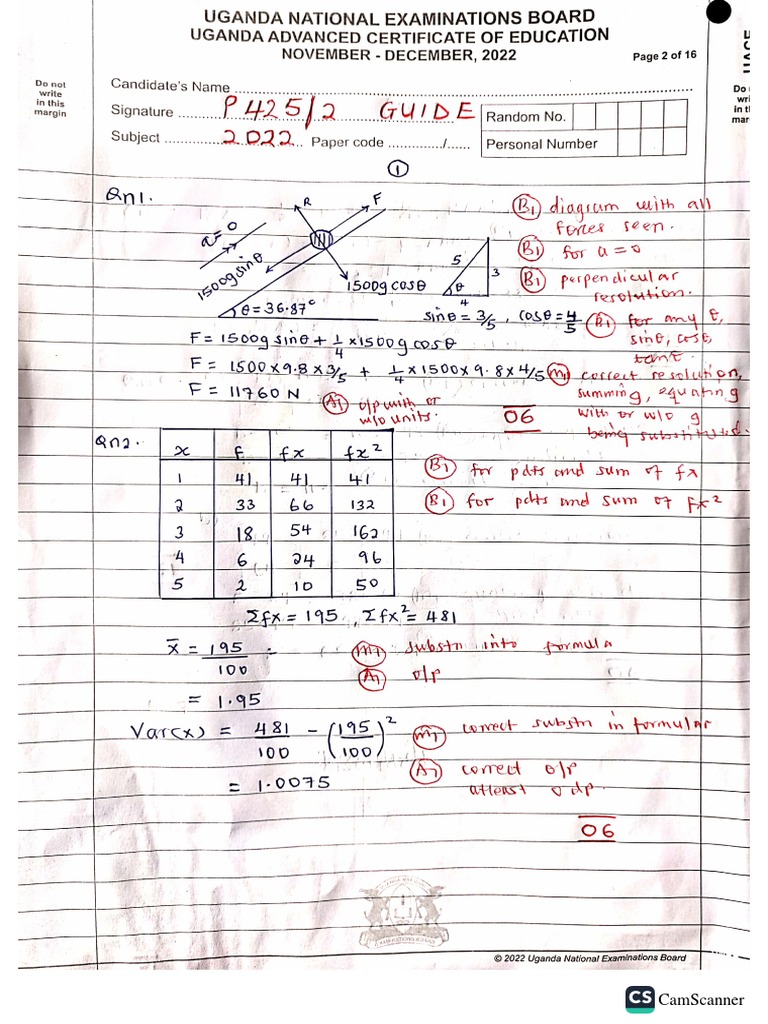 UGANDA NATIONAL EXAMINATIONS BOARD
UGANDA ADVANCED CERTIFICATE OF EDUCATION
NOVEMBER - DECEMBER, 2022
Page 2 of 16
Do not
write
in this
margin
Candidate's Name
Signature P425/2 GUIDE
Subject 2022 Paper code ........./......
Random No.
Personal Number
Do
wri
in t
mar
1
Qn1.
R
F
a=0
1500gsinθ
1500gcosθ
θ=36.87°
5
3
θ
4
sinθ = 3/5, cosθ = 4/5
B1 diagram with all
forces seen.
B1 for a=0
B1 perpendicular
resolution.
B1 for any θ,
sinθ, cosθ,
tanθ.
F = 1500g sinθ + 1/4 x 1500g cosθ
F = 1500 x 9.8 x 3/5 + 1/4 x 1500 x 9.8 x 4/5
M1 correct resolution,
summing, equating
with or w/o g
being substituted.
F = 11760 N
A1 o/p with or
w/o units.
06
Qn2.
x f fx fx²
1 41 41 41
2 33 66 132
3 18 54 162
4 6 24 96
5 2 10 50
B1 for pdts and sum of fx
B1 for pdts and sum of fx²
Σfx = 195, Σfx² = 481
x̄ = 195/100
M1 substn into formula
A1 o/p
= 1.95
Var(x) = 481/100 - (195/100)²
M1 correct substn in formular
= 1.0075
A1 correct o/p
atleast dp.
06
© 2022 Uganda National Examinations Board
CS CamScanner